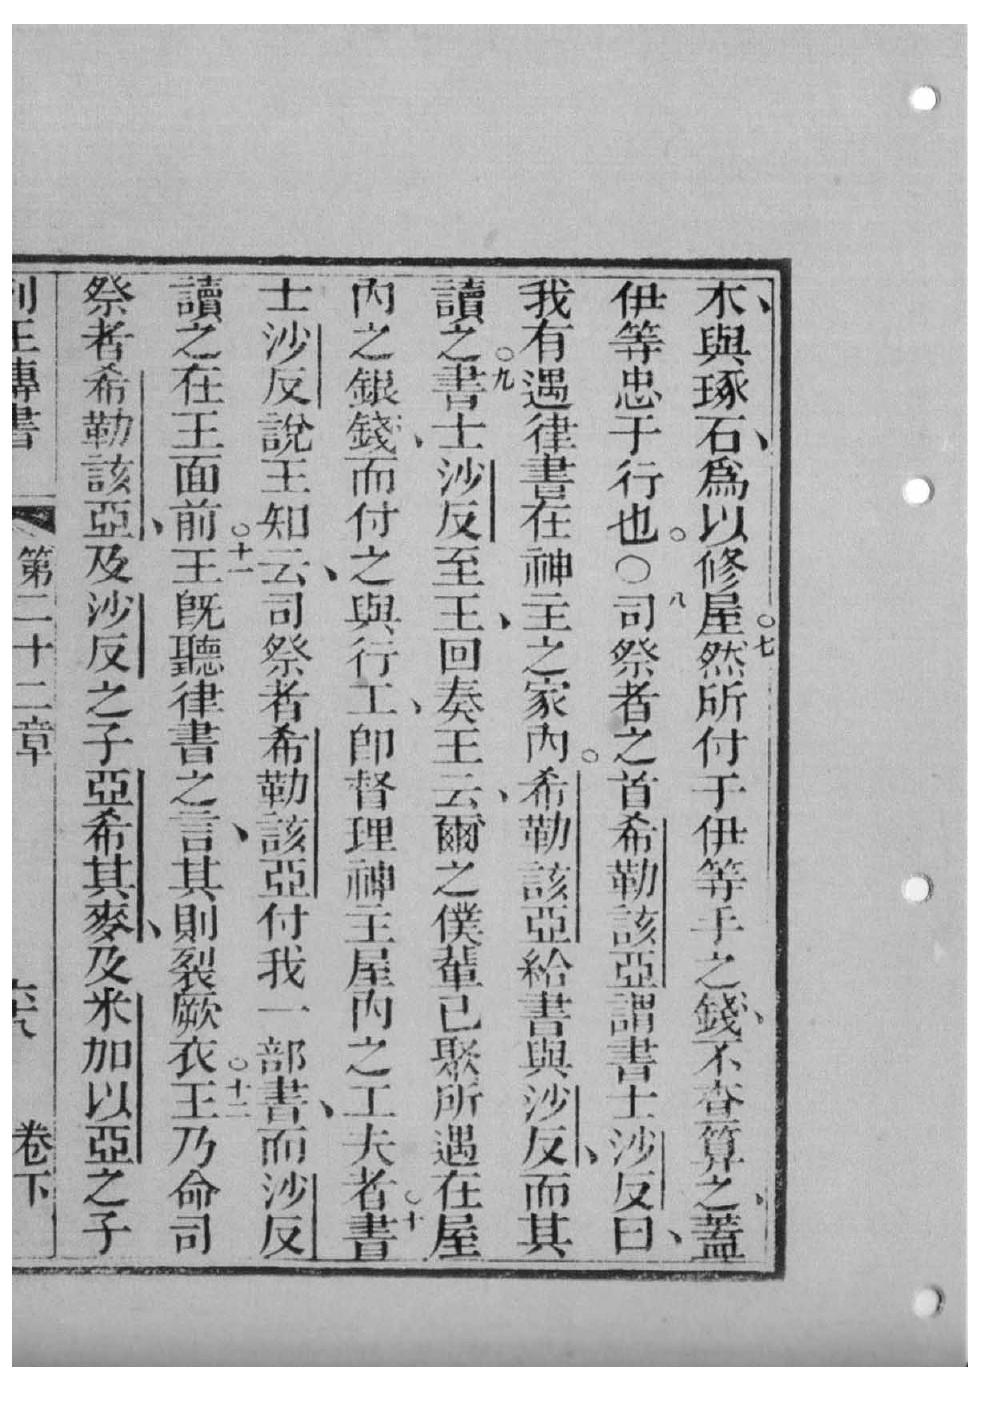 木、與琢石、爲以修屋。七然所付于伊等手之錢、不查算之、蓋
伊等忠于行也。○八司祭者之首希勒該亞謂書士沙反曰、
我有遇律書在神主之家內。希勒該亞給書與沙反、而其
讀之。九書士沙反至王、回奏王云、爾之僕輩已聚所遇在屋
內之銀錢、而付之與行工、卽督理神主屋內之工夫者。十書
士沙反說王知云、司祭者希勒該亞付我一部書、而沙反
讀之在王面前。十一王旣聽律書之言、其則裂厥衣。十二王乃命司
祭者希勒該亞、及沙反之子亞希其麥、及米加以亞之子
列王傳書 第二十二章 卷下